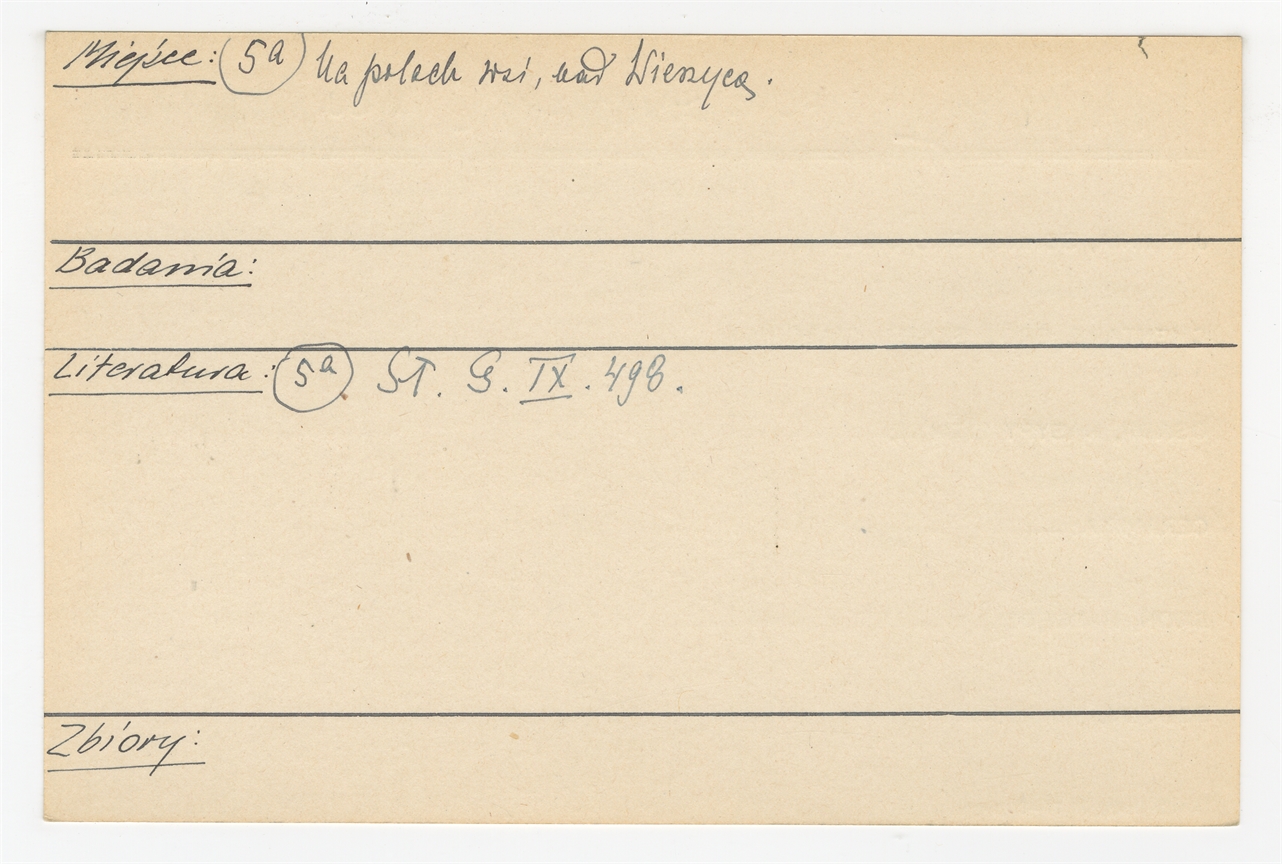 Miejsce: 5a Na polach wsi, nad Wierzycą.
Badania:
Literatura: 5a St. G. IX. 498.
Zbiory: